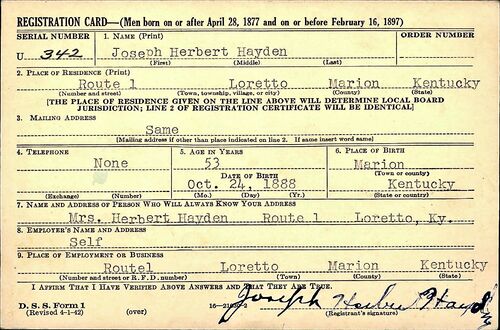 REGISTRATION CARD—(Men born on or after April 28, 1877 and on or before February 16, 1897)
SERIAL NUMBER 1. NAME (Print) ORDER NUMBER
U 342 Joseph Herbert Hayden
(First) (Middle) (Last)
2. PLACE OF RESIDENCE (Print)
Route 1 Loretto Marion Kentucky
(Number and street) (Town, township, village, or city) (County) (State)
[THE PLACE OF RESIDENCE GIVEN ON THE LINE ABOVE WILL DETERMINE LOCAL BOARD
JURISDICTION; LINE 2 OF REGISTRATION CERTIFICATE WILL BE IDENTICAL]
3. MAILING ADDRESS
Same
[Mailing address if other than place indicated on line 2. If same insert word same]
4. TELEPHONE 5. AGE IN YEARS 6. PLACE OF BIRTH
None 53 Marion
DATE OF BIRTH (Town or county)
Oct. 24, 1888 Kentucky
(Exchange) (Number) (Mo.) (Day) (Yr.) (State or country)
7. NAME AND ADDRESS OF PERSON WHO WILL ALWAYS KNOW YOUR ADDRESS
Mrs. Herbert Hayden Route 1 Loretto, Ky.
8. EMPLOYER'S NAME AND ADDRESS
Self
9. PLACE OF EMPLOYMENT OR BUSINESS
Route1 Loretto Marion Kentucky
(Number and street or R. F. D. number) (Town) (County) (State)
I AFFIRM THAT I HAVE VERIFIED ABOVE ANSWERS AND THAT THEY ARE TRUE.
D. S. S. Form 1 Joseph Herbert Hayden
(Revised 4-1-42) (over) (Registrant's signature)